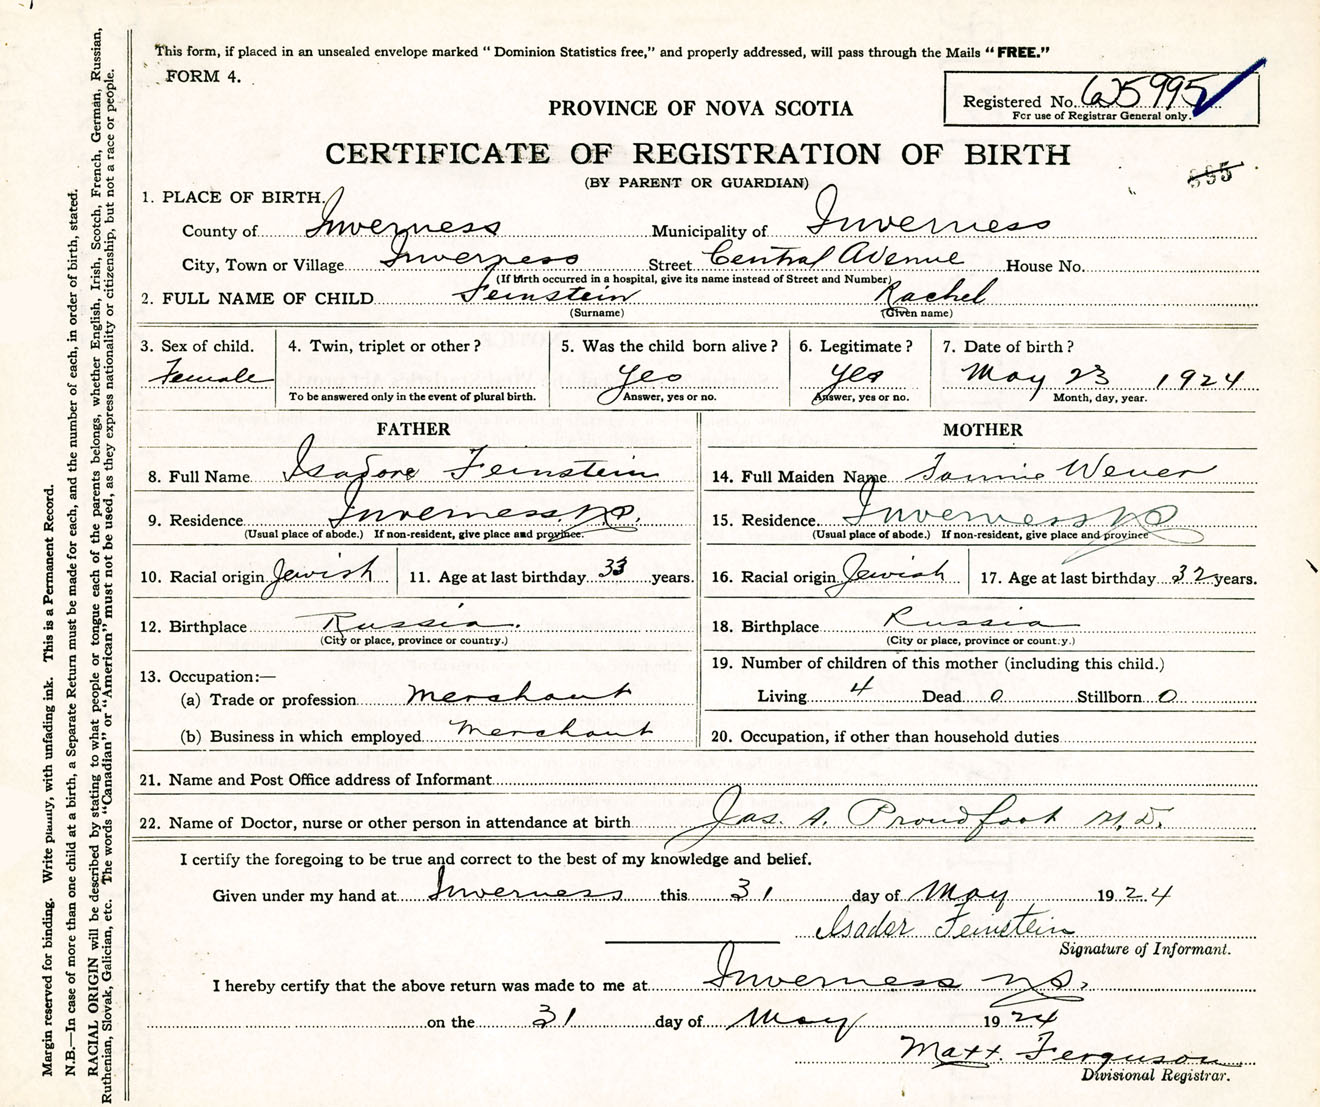 This form, if placed in an unsealed envelope marked "Dominion Statistics free," and properly addressed, will pass through the Mails "FREE."
FORM 4.
Registered No. 625995
For use of Registrar General only.
PROVINCE OF NOVA SCOTIA
CERTIFICATE OF REGISTRATION OF BIRTH
(BY PARENT OR GUARDIAN)
1. PLACE OF BIRTH.
County of Inverness Municipality of Inverness
City, Town or Village Inverness Street Central Avenue House No.
(If birth occurred in a hospital, give its name instead of Street and Number)
2. FULL NAME OF CHILD Feinstein Rachel
(Surname) (Given name)
3. Sex of child. 4. Twin, triplet or other? 5. Was the child born alive? 6. Legitimate? 7. Date of birth?
Female Yes Yes May 23 1924
To be answered only in the event of plural birth. Answer, yes or no. Answer, yes or no. Month, day, year.
FATHER MOTHER
8. Full Name Isadore Feinstein 14. Full Maiden Name Fannie Wener
9. Residence Inverness N.S. 15. Residence. Inverness NS
(Usual place of abode.) If non-resident, give place and province. (Usual place of abode.) If non-resident, give place and province
10. Racial origin Jewish 11. Age at last birthday 33 years. 16. Racial origin Jewish 17. Age at last birthday 32 years.
12. Birthplace Russia. 18. Birthplace Russia
(City or place, province or country.) (City or place, province or country.)
13. Occupation:— 19. Number of children of this mother (including this child.)
(a) Trade or profession Merchant Living 4 Dead 0 Stillborn 0
(b) Business in which employed Merchant 20. Occupation, if other than household duties
21. Name and Post Office address of Informant
22. Name of Doctor, nurse or other person in attendance at birth Jas. A. Proudfoot M.D.
I certify the foregoing to be true and correct to the best of my knowledge and belief.
Given under my hand at Inverness this 31 day of May 1924
Isador Feinstein
Signature of Informant.
I hereby certify that the above return was made to me at Inverness N.S.
on the 31 day of May 1924
Matt. Ferguson
Divisional Registrar.
Margin reserved for binding. Write plainly, with unfading ink. This is a Permanent Record.
N.B.—In case of more than one child at a birth, a Separate Return must be made for each, and the number of each, in order of birth, stated.
RACIAL ORIGIN will be described by stating to what people or tongue each of the parents belongs, whether English, Irish, Scotch, French, German, Russian,
Ruthenian, Slovak, Galician, etc. The words "Canadian" or "American" must not be used, as they express nationality or citizenship, but not a race or people.